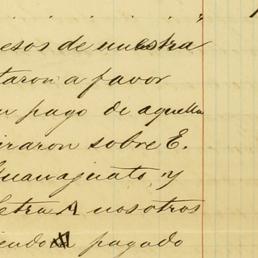 esos de nuestra
taron a favor
n pago de aquella
iraron sobre E.
Guanajuato, y
letra A nosotros
iendo pagado